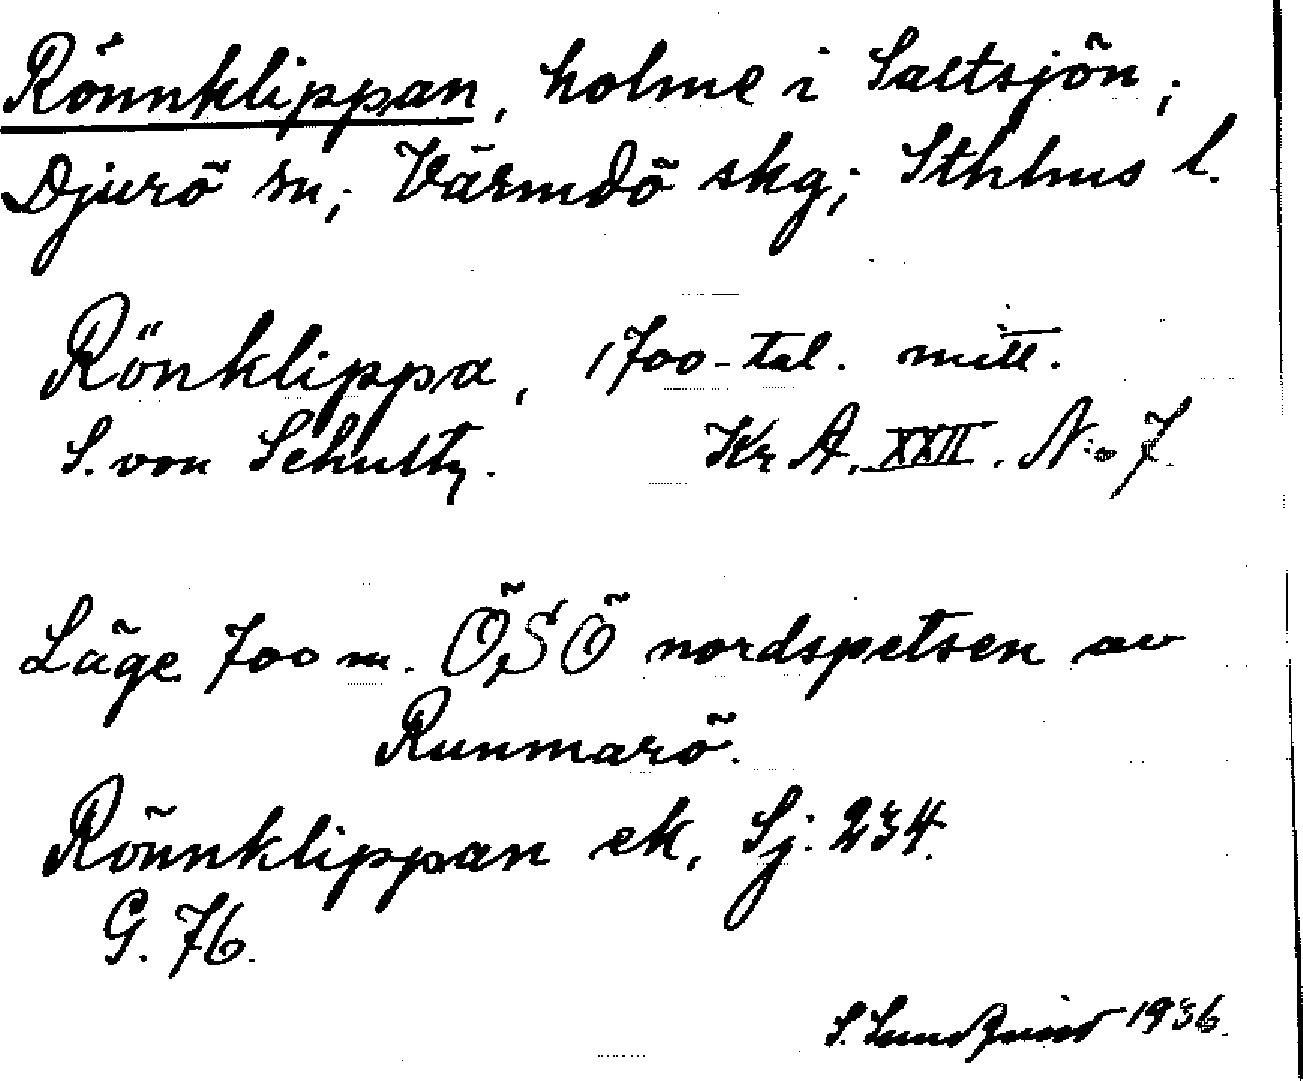 Rönnklippan, holme i Saltsjön;
Djurö sn; Värmdö skg; Sthlms l.
Rönklippa, 1700-tal. mitt.
S. von Schultz. Kr A. XXII. N:o 7.
Läge 700 m. ÖSÖ nordspetsen av
Runmarö.
Rönnklippan ek. Sj: 234.
G. 76.
S. Lundqvist 1936.